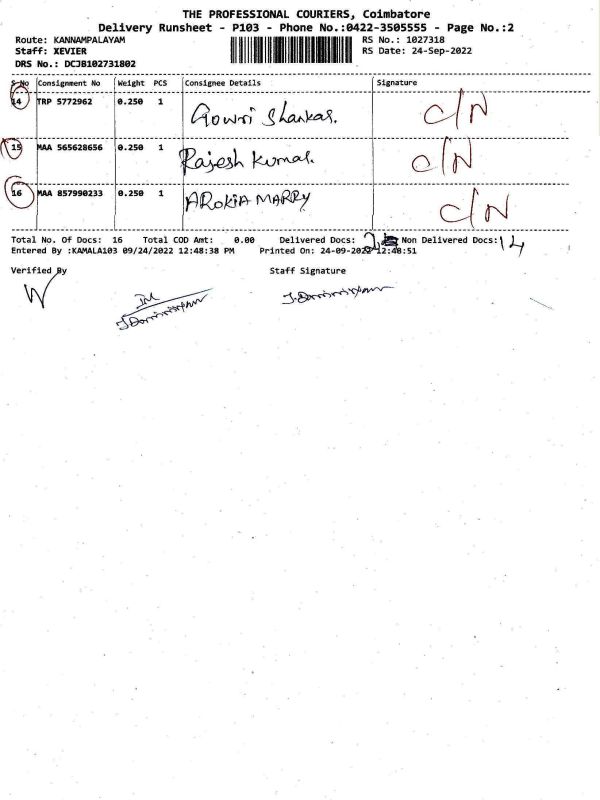 THE PROFESSIONAL COURIERS, Coimbatore
Delivery Runsheet - P103 - Phone No.:0422-3505555 - Page No.:2
Route: KANNAMPALAYAM RS No.: 1027318
Staff: XEVIER RS Date: 24-Sep-2022
DRS No.: DCJB102731802
S.No Consignment No Weight PCS Consignee Details Signature
14 TRP 5772962 0.250 1 Gowri Shankar. C/N
15 MAA 565628656 0.250 1 Rajesh Kumar. C/N
16 MAA 857990233 0.250 1 AROKIA MARRY C/N
Total No. Of Docs: 16 Total COD Amt: 0.00 Delivered Docs: 2 Non Delivered Docs: 14
Entered By :KAMALA103 09/24/2022 12:48:38 PM Printed On: 24-09-2022 12:48:51
Verified By Staff Signature